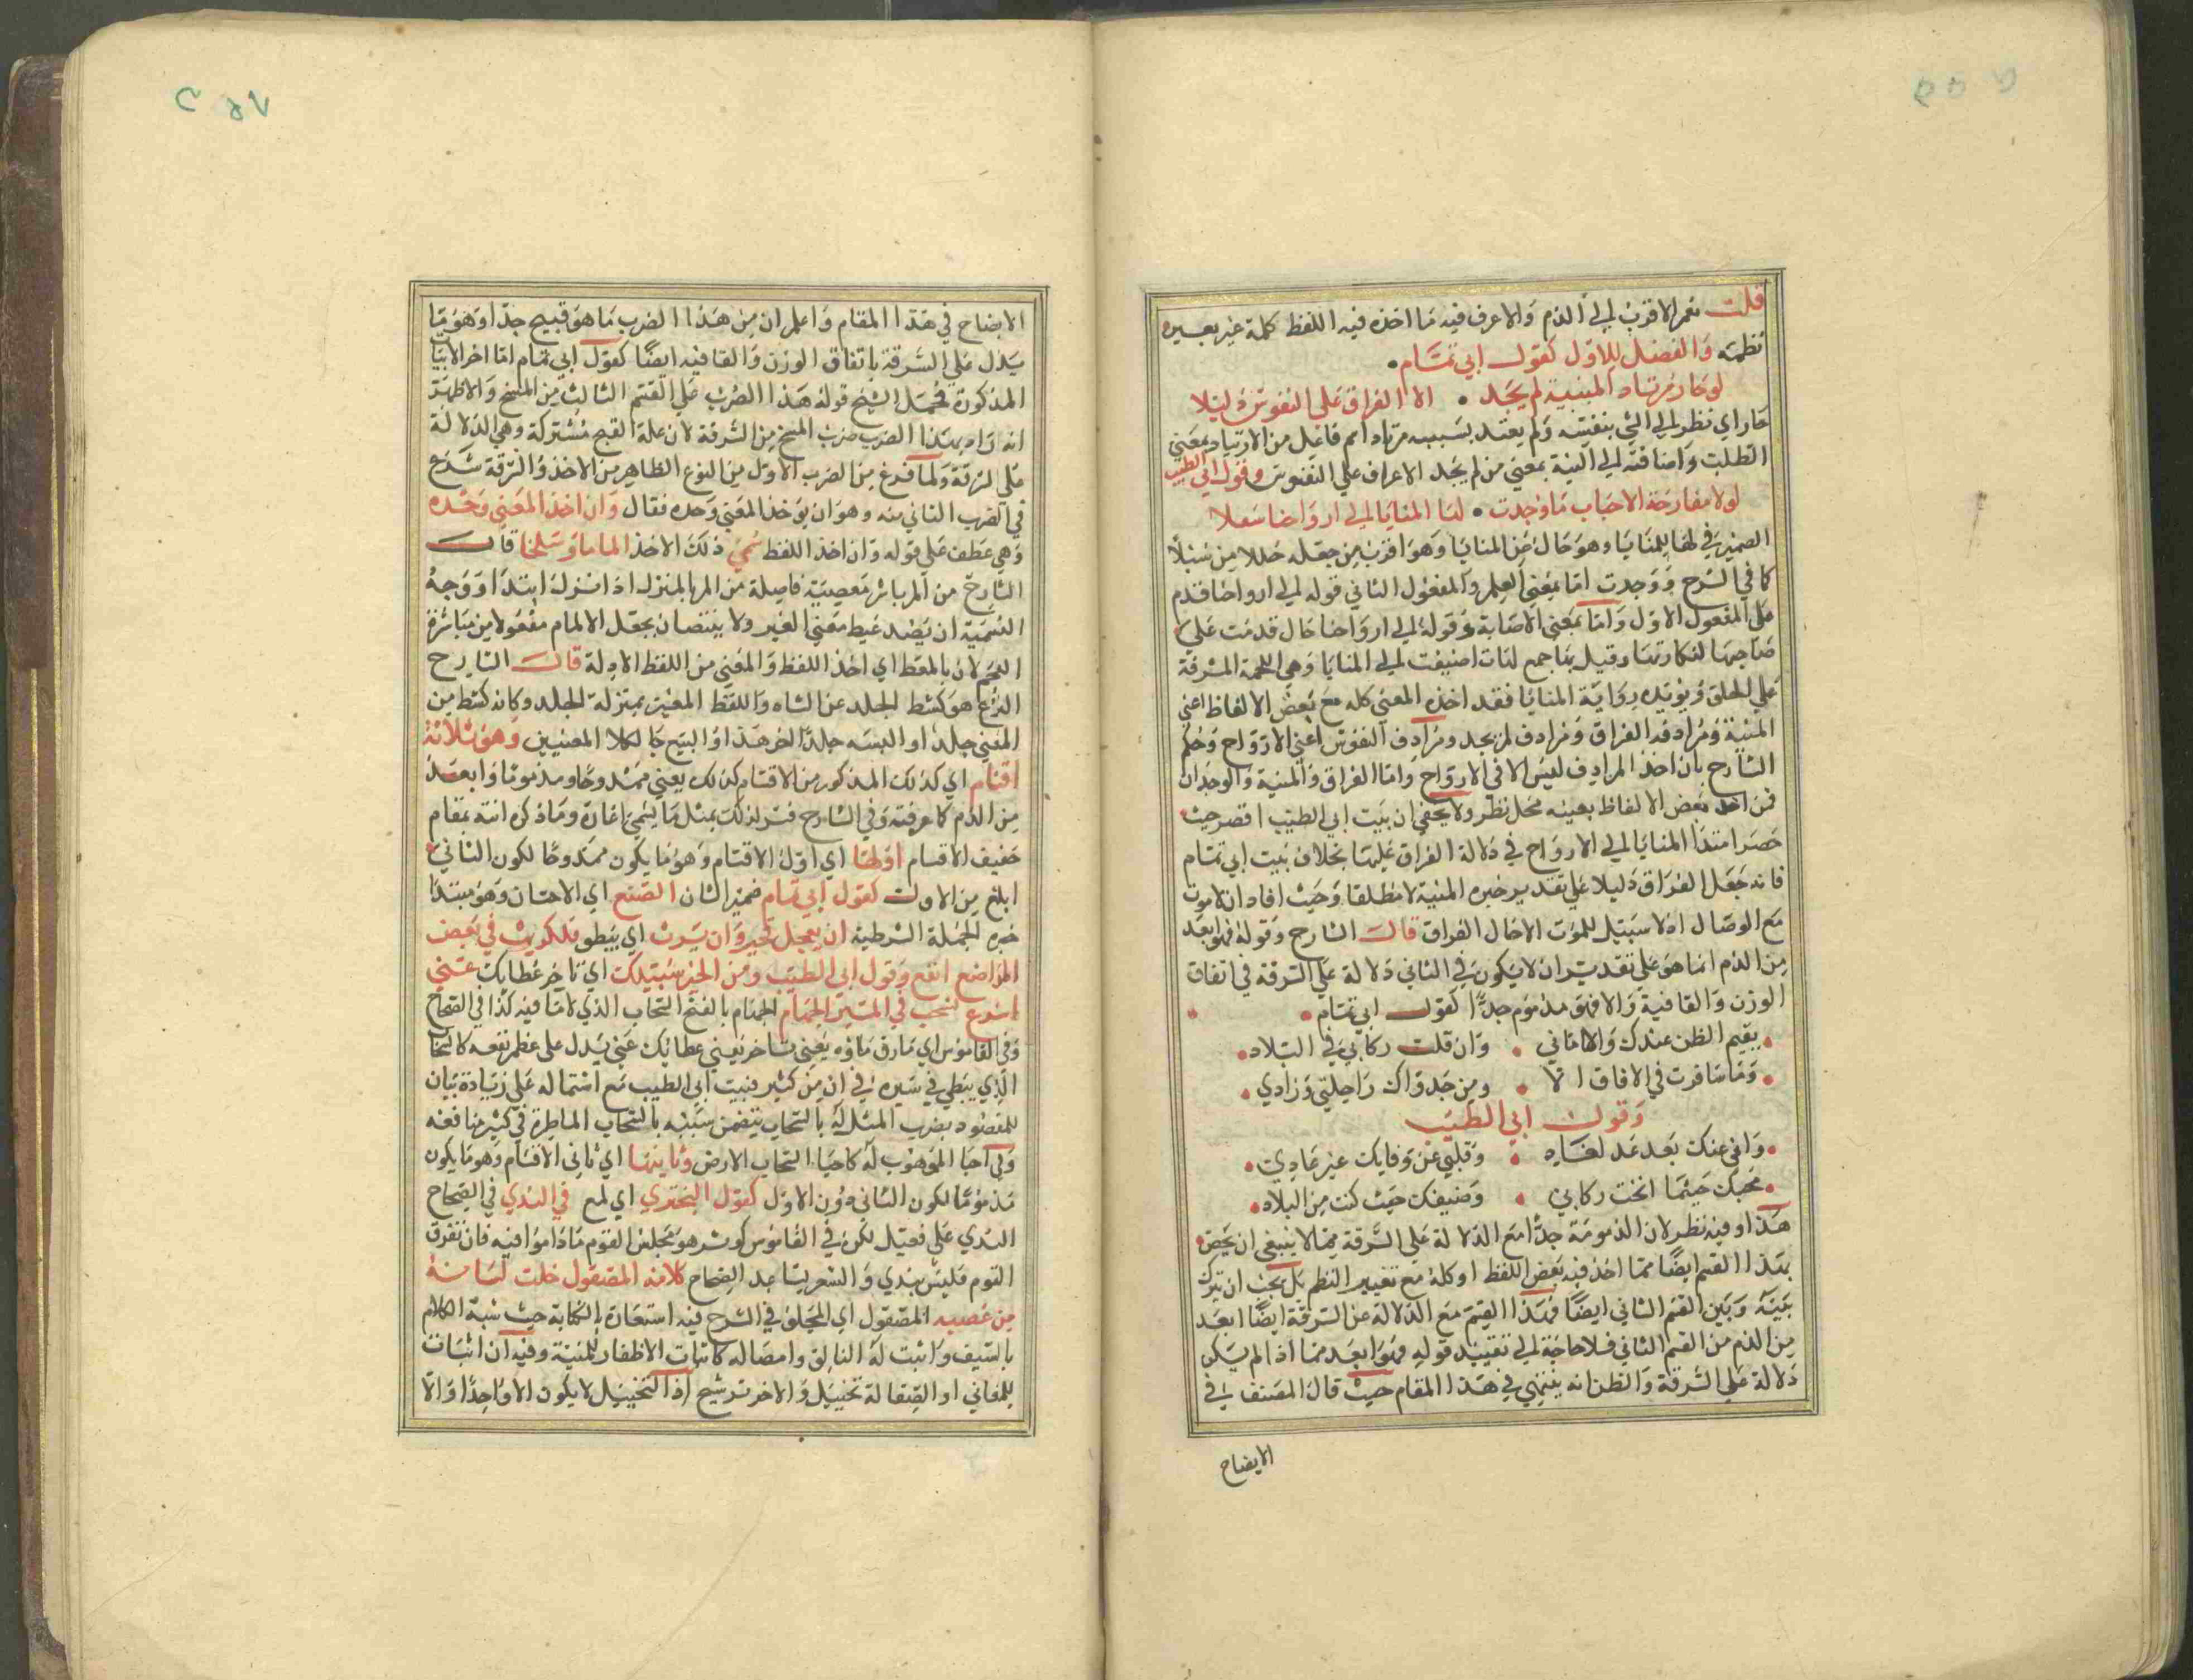 قلت نعم الاقرب الى الذم والاعرف فيه ما اخذ فيه اللفظ كلمة غير يسيره
نظمه والفضل للاول كقول ابي تمام
لو حار مرتاد المنية لم يجد • الا الفراق على النفوس دليلا
حار اي نظر الى الشي بنفسه ولم يعتد بسببه مرتاد اسم فاعل من الارتياد بمعني
الطلب واضافته الى المنية بمعني من لم يجد الا عراف علي النفوس وقول ابي الطيب
لولا مفارقة الاحباب ما وجدت • لها المنايا الى ارواحنا سبلا
الضمير في لها للمنايا وهو حال من المنايا وهو اقرب من جعله حالا من سبلا
كما في الشرح ووجدت اما بمعني العلم والمفعول الثاني قوله الى ارواحنا قدم
على المفعول الاول واما بمعني الاصابة وقوله الى ارواحنا حال قدمت على
صاحبها لنكارتها وقيل بها جمع لهات اضيفت الى المنايا وهي اللحمة المشرفة
على الحلق ويؤيده رواية المنايا فقد اخذ المعنى كله مع بعض الالفاظ اعني
المنية ومرادفه الفراق ومرادف لم يجد ومرادف النفوس اعني الارواح وحكم
الشارح بان اخذ المرادف ليس الا في الارواح واما الفراق والمنية والوجدان
فمن اخذ بعض الالفاظ بعينه محل نظر ولا يخفي ان بيت ابي الطيب اقصر حيث
حصر اهتدا المنايا الى الارواح في دلالة الفراق عليها بخلاف بيت ابي تمام
فانه جعل الفراق دليلا على تقدير خبره المنية لا مطلقا وحيث افاد ان لا موت
مع الوصال اذ لا سبيل للموت الا حال الفراق قال الشارح وقوله فهو ابعد
من الذم انما هو على تقدير ان لا يكون في الثاني دلالة على السرقة في اتفاق
الوزن والقافية والا فهو مذموم جدا كقول ابي تمام
• يقيم الظن عندك والاماني • وان قلت ركابي في البلاد •
• وما سافرت في الافاق الا • ومن جدواك راحلتي وزادي •
وقول ابي الطيب
• واني عنك بعد غد لغاد • وقلبي عن فنايك غير غادي •
• محبك حيثما اتجهت ركابي • وضيفك حيث كنت من البلاد •
هذا وفيه نظر لان المذمومة جدا مع الدلالة على السرقة مما لا ينبغي ان يخص
بهذا القسم ايضا مما اخذ فيه بعض اللفظ او كله مع تغيير النظم بل يجب ان يترك
بينه وبين القسم الثاني ايضا فهذا القسم مع الدلالة عن السرقة ايضا ابعد
من الذم من القسم الثاني فلا حاجة الى تقييد قوله فهو ابعد بما اذا لم يكن
دلالة على السرقة والظن انه ينتهي في هذا المقام حيث قال المصنف في
الايضاح
الايضاح في هذا المقام واعلم ان من هذا الضرب ما هو قبيح جدا وهو ما
يدل على السرقة باتفاق الوزن والقافيه ايضا كقول ابي تمام اما اخر الابيا
المذكورة فحمل الشيخ قوله هذا الضرب على القسم الثالث من المسخ والاظهر
انه اراد بهذا الضرب ضرب المسخ من السرقة لان علة القبح مشتركة وهي الدلالة
على السرقة ولما فرغ من الضرب الاول من النوع الظاهر من الاخذ والسرقة شرع
في الضرب الثاني منه وهو ان يؤخذ المعني وحده فقال وان اخذ المعنى وحده
وهي عطف على قوله وان اخذ اللفظ سمي ذلك الاخذ الماما وسلخا قال
الشارح من الم بالشي بمعصية فاصلة من الم بالمنزل اذا نزل ابتدا ووجه
التسمية ان يقصد غيط معني الغير ولا ينتصان بجعل الالمام مفعولا من مباشرة
اللحم لان بالمعط اي اخذ اللفظ والمعنى من اللفظ الا دلة قال الشارح
النزع هو كشط الجلد عن الشاه واللفظ المعنى بمنزلة الجلد وكانه كشط من
المعني جلدا والبسه جلدا اخر هذا والبيع جا لكلا المعنيين وهو ثلاثة
اقسام اي كذلك المذكور من الاقسام كذلك يعني ممدوحا ومذموما وابعد
من الذم كما عرفته وفي الشارح فسر لذلك بمثل ما يسمى اغارة وما ذكره انسة بمقام
ضعيف الاقسام اولها اي اول الاقسام وهو ما يكون ممدوحا لكون الثاني
ابلغ من الاول كقول ابي تمام ضمير الشان الصنع اي الاحسان وهو مبتدا
خبره الجملة الشرطية ان يعجل فخير وان يرث اي يبطو فللريث في بعض
المواضع انفع وقول ابي الطيب ومن الخير بطؤ سيبك اي تاخر عطايك عني
اسرع السحب في المسير الجهام الجهام بالفتح السحاب الذي لا ما فيه كذا في الصحاح
وفي القاموس اي ما راق ماؤه يعني تاخر يعني عطائك عني يدل على عظم نفعه كالسحاب
الذي يبطي في سيره في ان من كثير فبيت ابي الطيب مع اشتماله على زيادة بيان
للمقصود بضرب المثل له بالسحاب يتضمن تشبيه بالسحاب الماطرة في كثير منافعه
وفي احيا الموهوب له كاحيا السحاب الارض وثانيها اي ثاني الاقسام وهو ما يكون
مذموما لكون الثاني دون الاول كقول البحتري اي لمع في الندي في الصحاح
الندي على فعيل لكن في القاموس كو شرهو مجلس القوم ما داموا فيه فان تفرق
القوم فليس بندي والشعر يساعد الصحاح كلامه المصقول خلت لسانه
من عضبه المصقول اي المجلو في الشرح فيه استعارة بالكناية حيث شبه الكلام
بالسيف واثبت له التالق وامضاله كاثبات الاظفار للمنية وفيه ان اثبات
للمعاني او الصقالة تخييل والاخر ترشيح اذ التخييل لا يكون الا واحدا والا